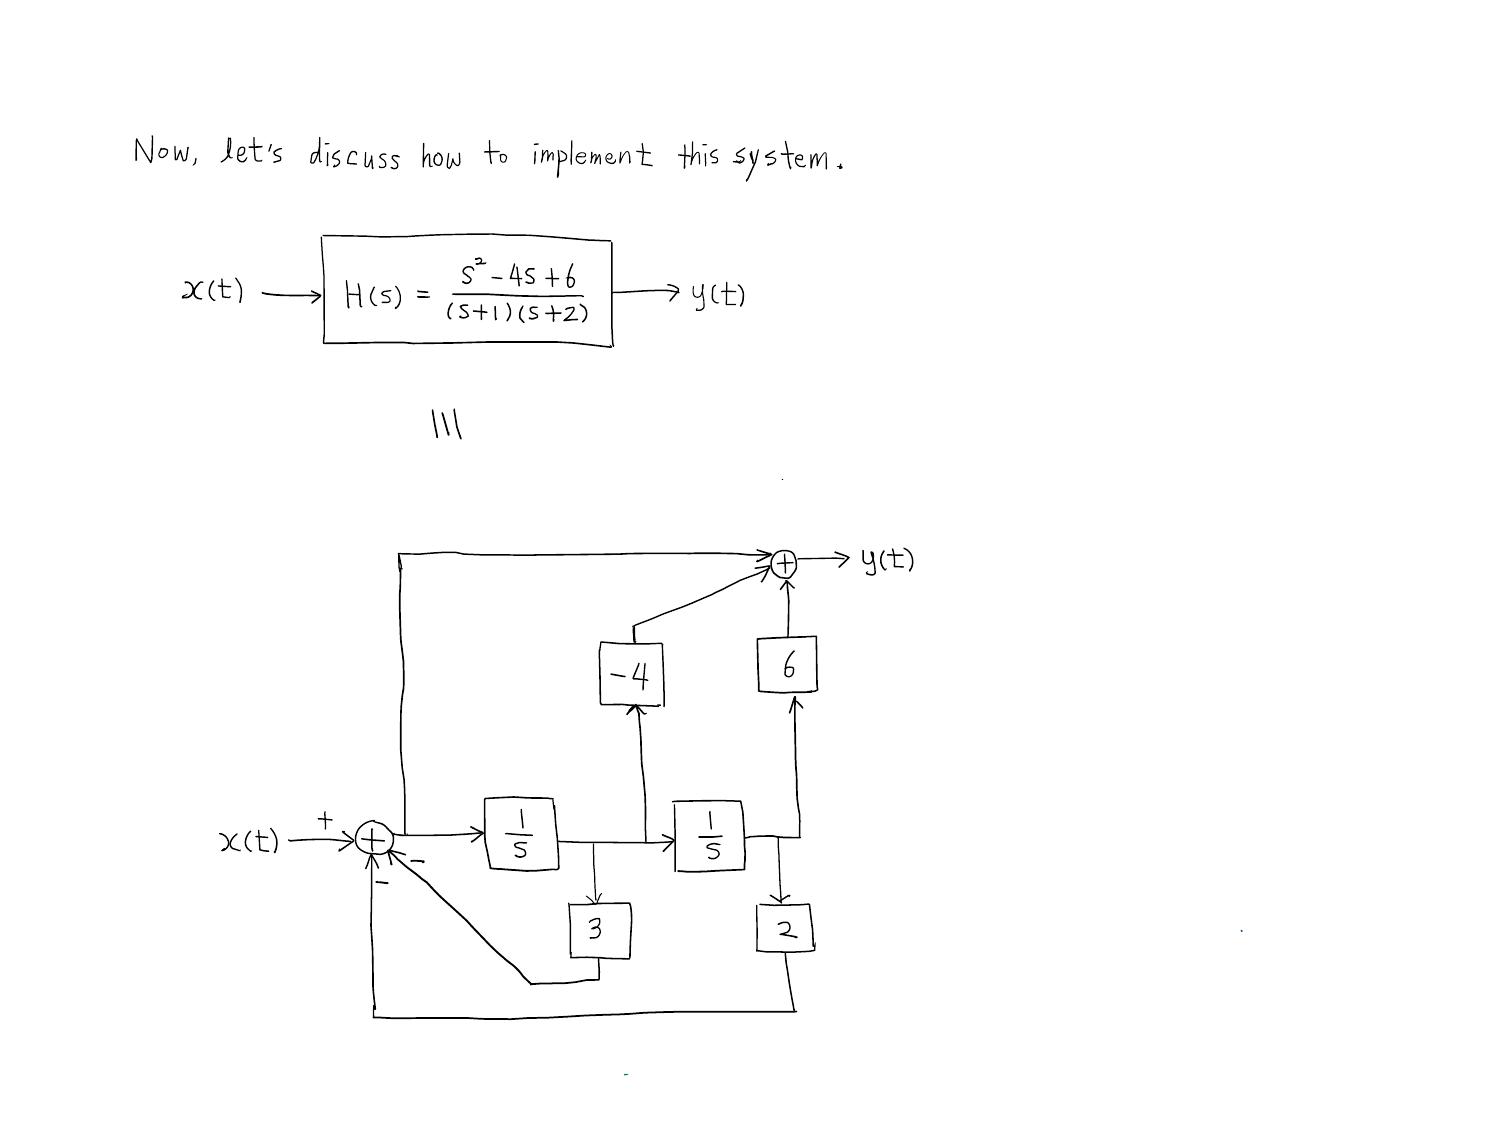 Now, let's discuss how to implement this system.
x(t) H(s) = s² - 4s + 6 / (s+1)(s+2) y(t)
|||
+ y(t)
-4 6
x(t) + + 1/s 1/s
- -
3 2